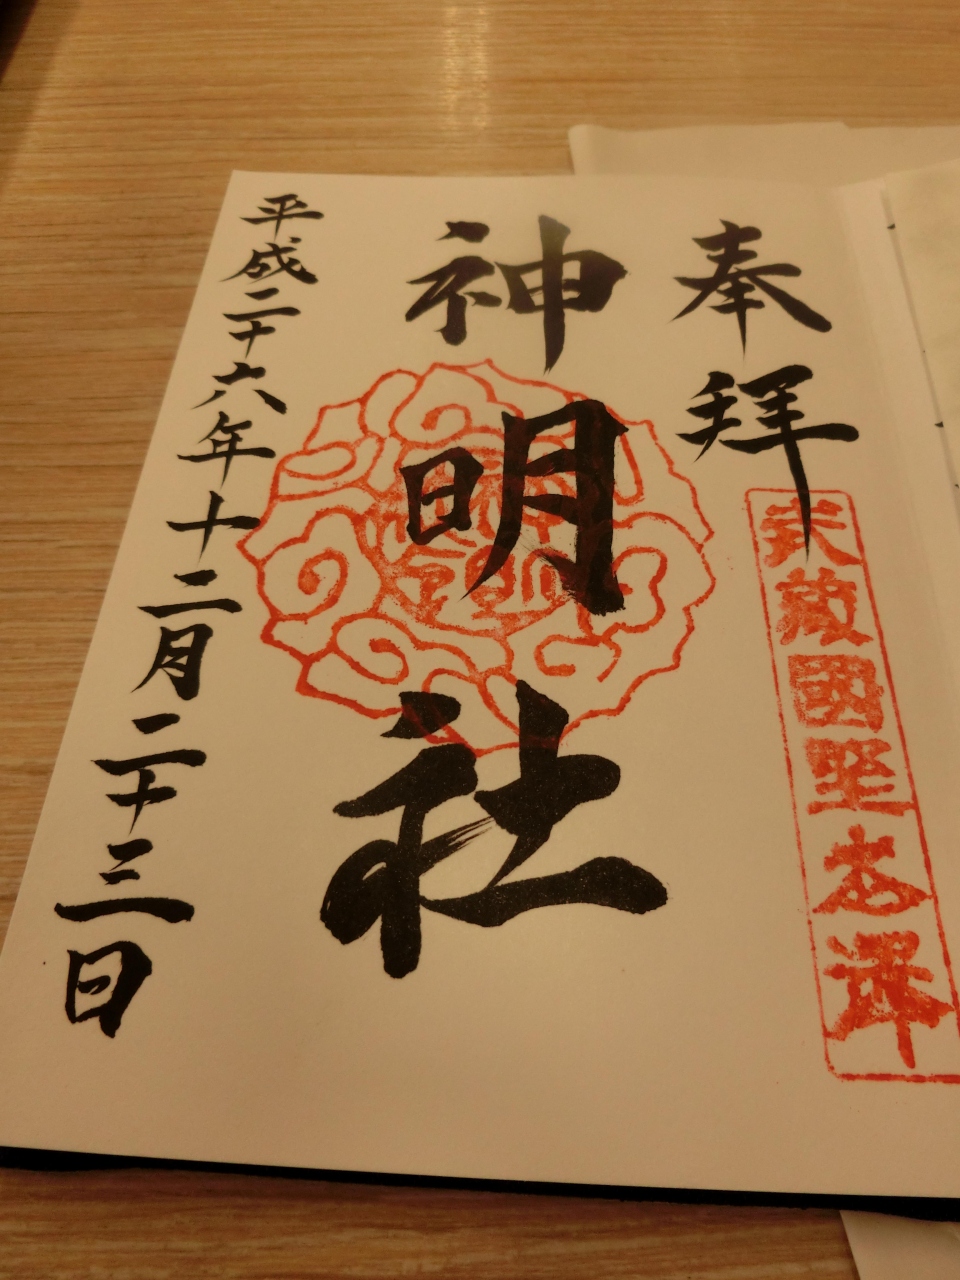 奉拝
武蔵國野老澤
神明社
平成二十六年十二月二十三日